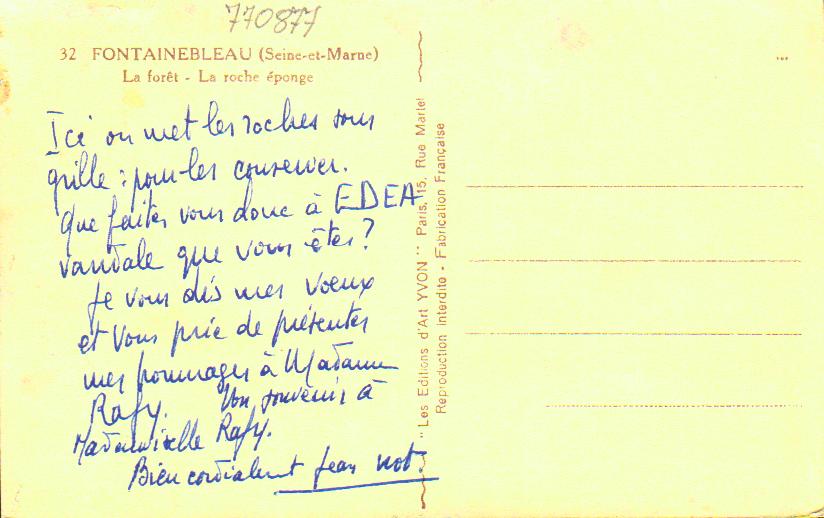 770877
32 FONTAINEBLEAU (Seine-et-Marne)
La forêt - La roche éponge
Ici on met les roches sous
grille : pour les conserver.
Que faites vous donc à EDEA
vandale que vous êtes?
Je vous dis mes voeux
et vous prie de présenter
mes hommages à Madame
Rafy. Mon souvenir à
Mademoiselle Rafy.
Bien cordialement Jean
"Les Editions d'Art YVON" Paris, 15, Rue Martel
Reproduction Interdite - Fabrication Française